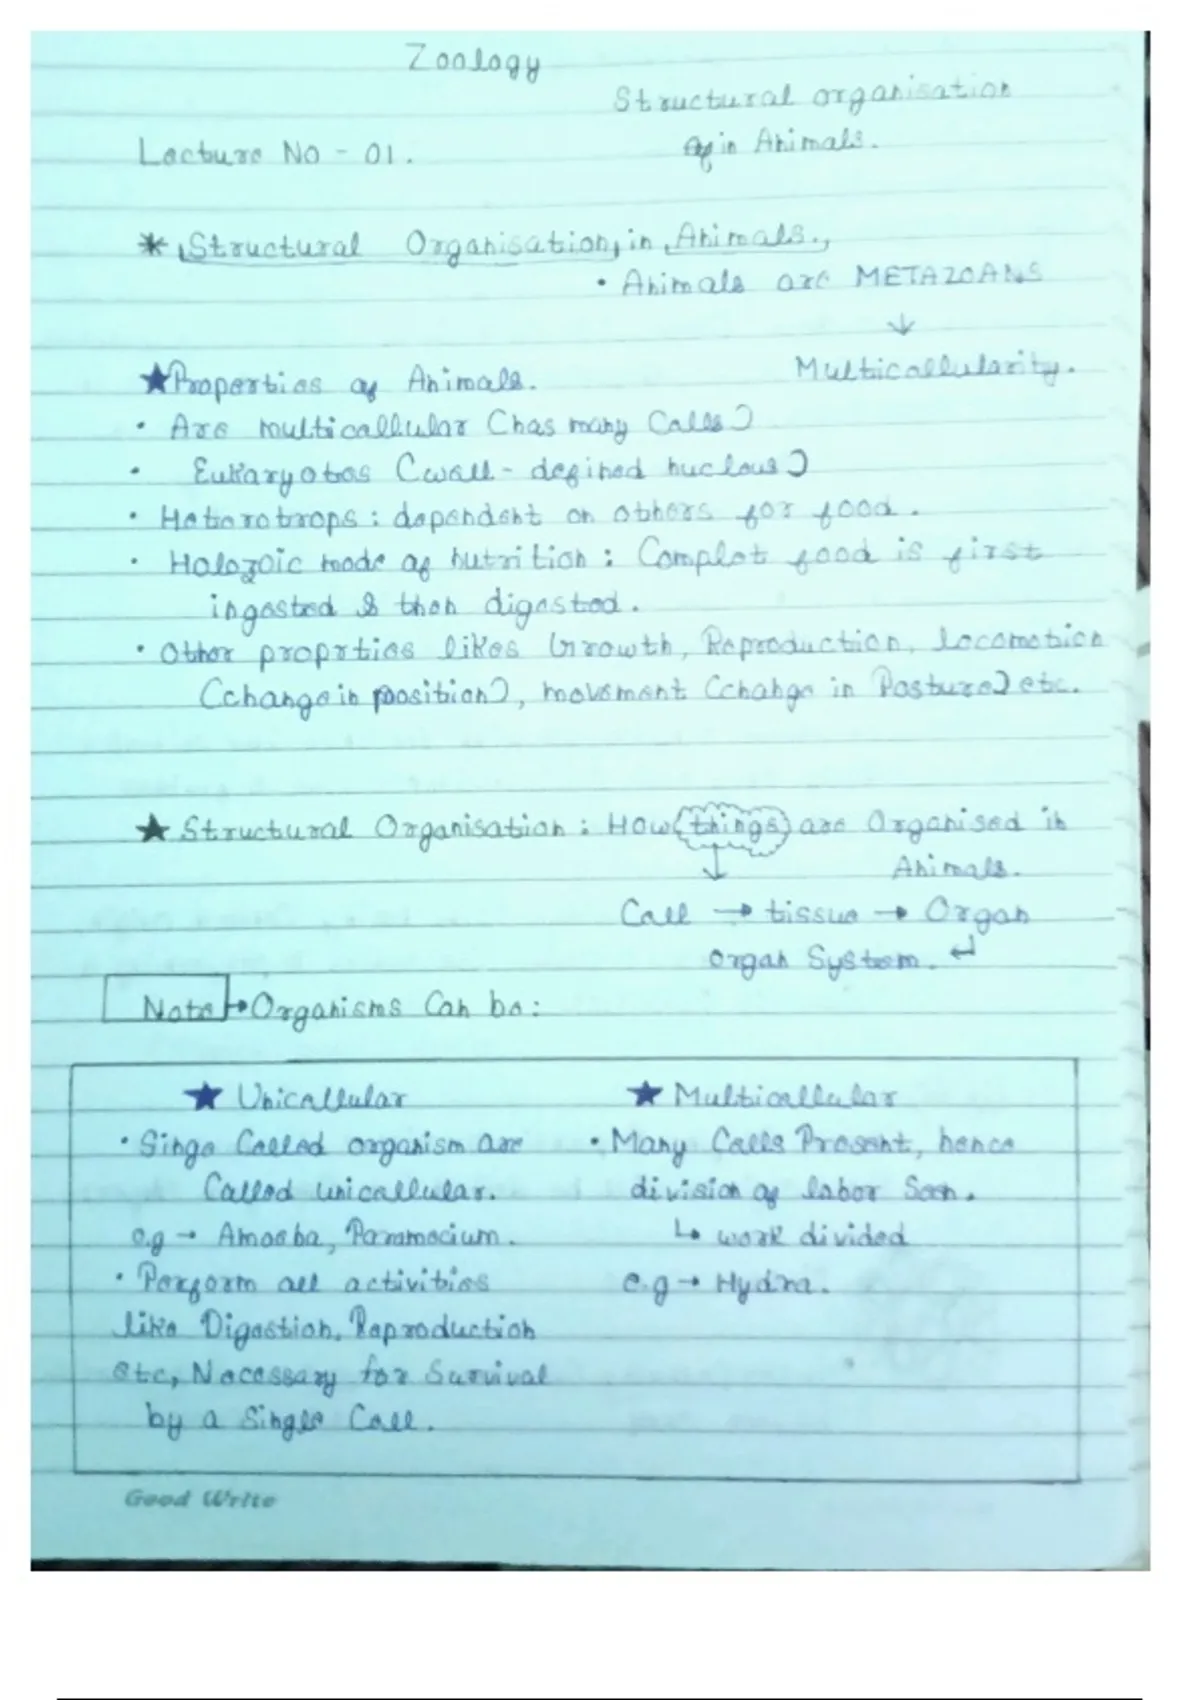 Zoology
Structural organisation
Lecture No - 01.
in Animals.
* Structural Organisation, in Animals.,
• Animals are METAZOANS
↓
Multicellularity.
★ Properties of Animals.
• Are multicellular (has many Cells)
• Eukaryotes (well-defined nucleus)
• Heterotrops : dependent on others for food.
• Holozoic mode of nutrition : Complet food is first
ingested & then digested.
• Other proprties likes Growth, Reproduction, locomotion
(change in position), movement (change in Posture) etc.
★ Structural Organisation : How (things) are Organised in
↓ Animals.
Cell → tissue → Organ
organ System. ↵
Note → Organisms Can be:
★ Unicellular
• Singe Celled organism are
Called unicellular.
e.g → Amoeba, Paramecium.
• Perform all activities
like Digestion, Reproduction
etc, Necessary for Survival
by a Single Cell.
★ Multicellular
• Many Cells Present, hence
division of labor Seen.
↳ work divided
e.g → Hydra.
Good Write